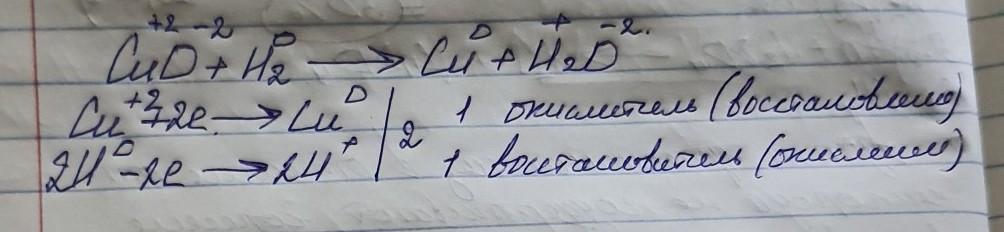 +2 -2 0 0 + -2
CuO + H₂ → Cu + H₂O
Cu⁺² + 2e → Cu⁰ | 2 1 окислитель (восстановление)
2H⁰ - 2e → 2H⁺ | 1 восстановитель (окисление)